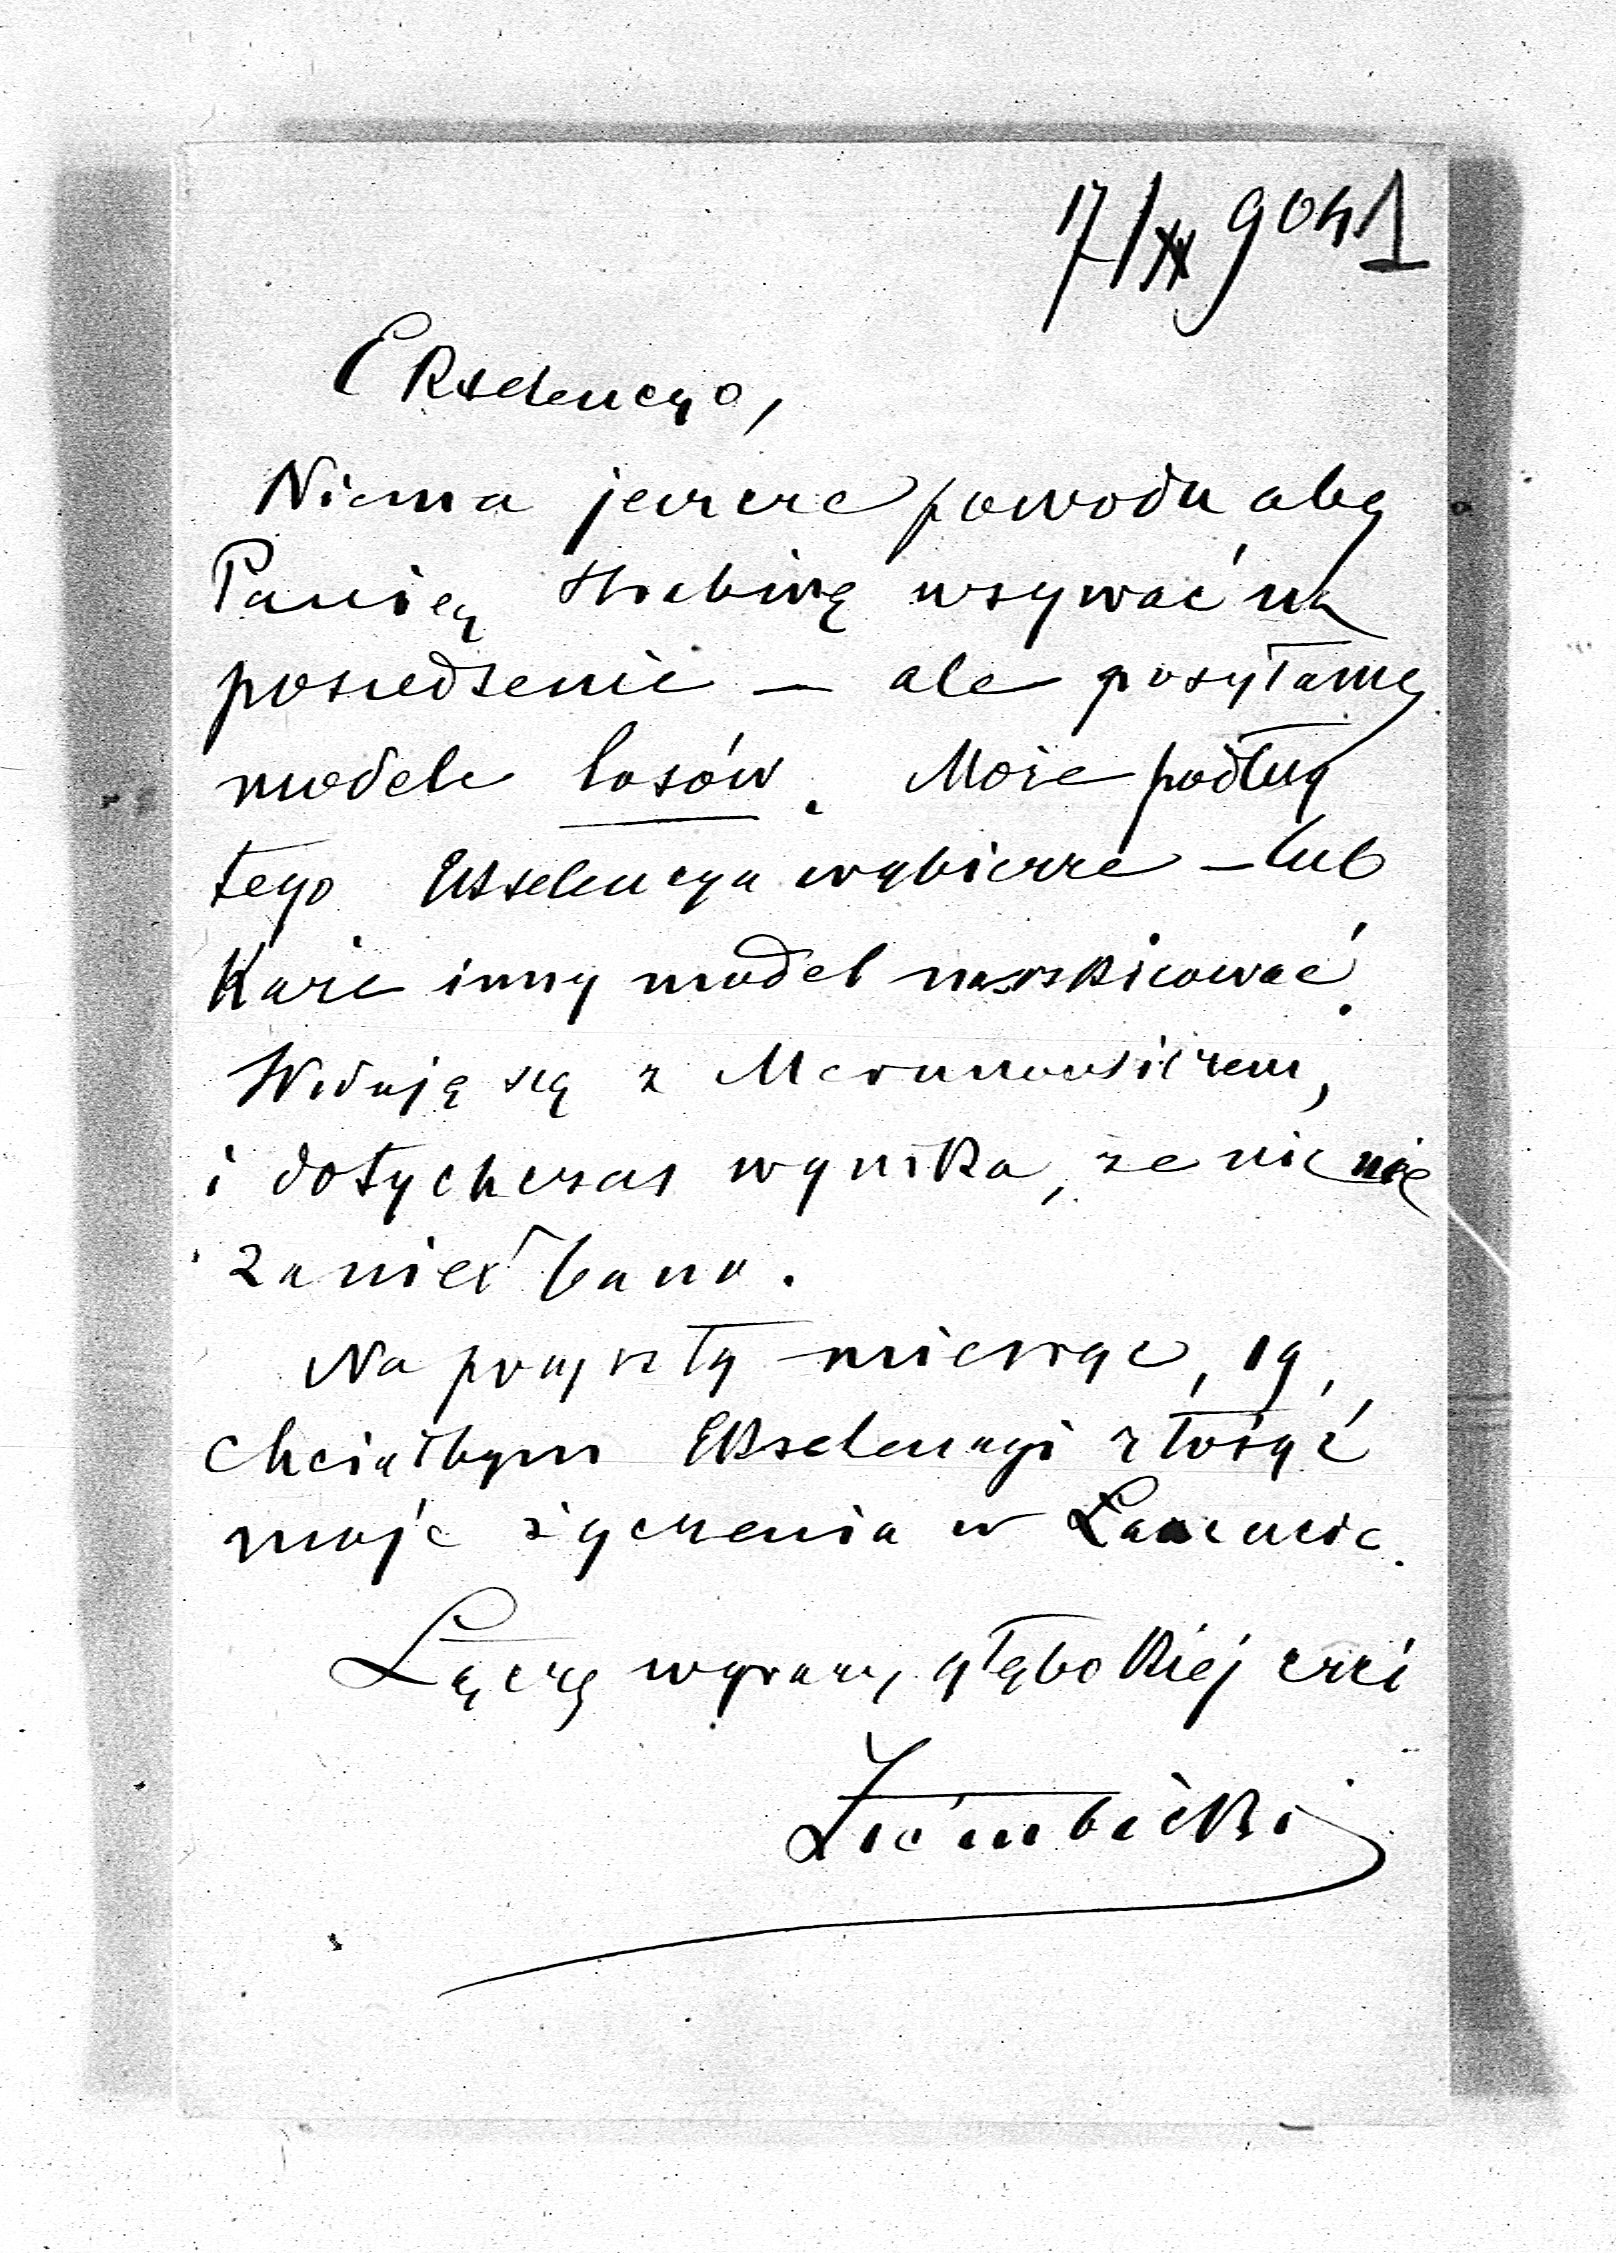 17/IX 904 1
Ekselencyo,
Niema jeszcze powodu aby
Panią Hrabinę wzywać na
posiedzenie — ale posyłamy
modele losów. Może podług
tego Ekselencya wybierze — lub
Każe inny model naszkicować.
Widuję się z Merunowiczem,
i dotychczas wynika, że nic nie
zaniedbano.
Na przyszły miesiąc, 19,
chciałbym Ekselencyi złożyć
moje życzenia w Łańcucie.
Łączę wyrazy głębokiej czci
Ziembicki